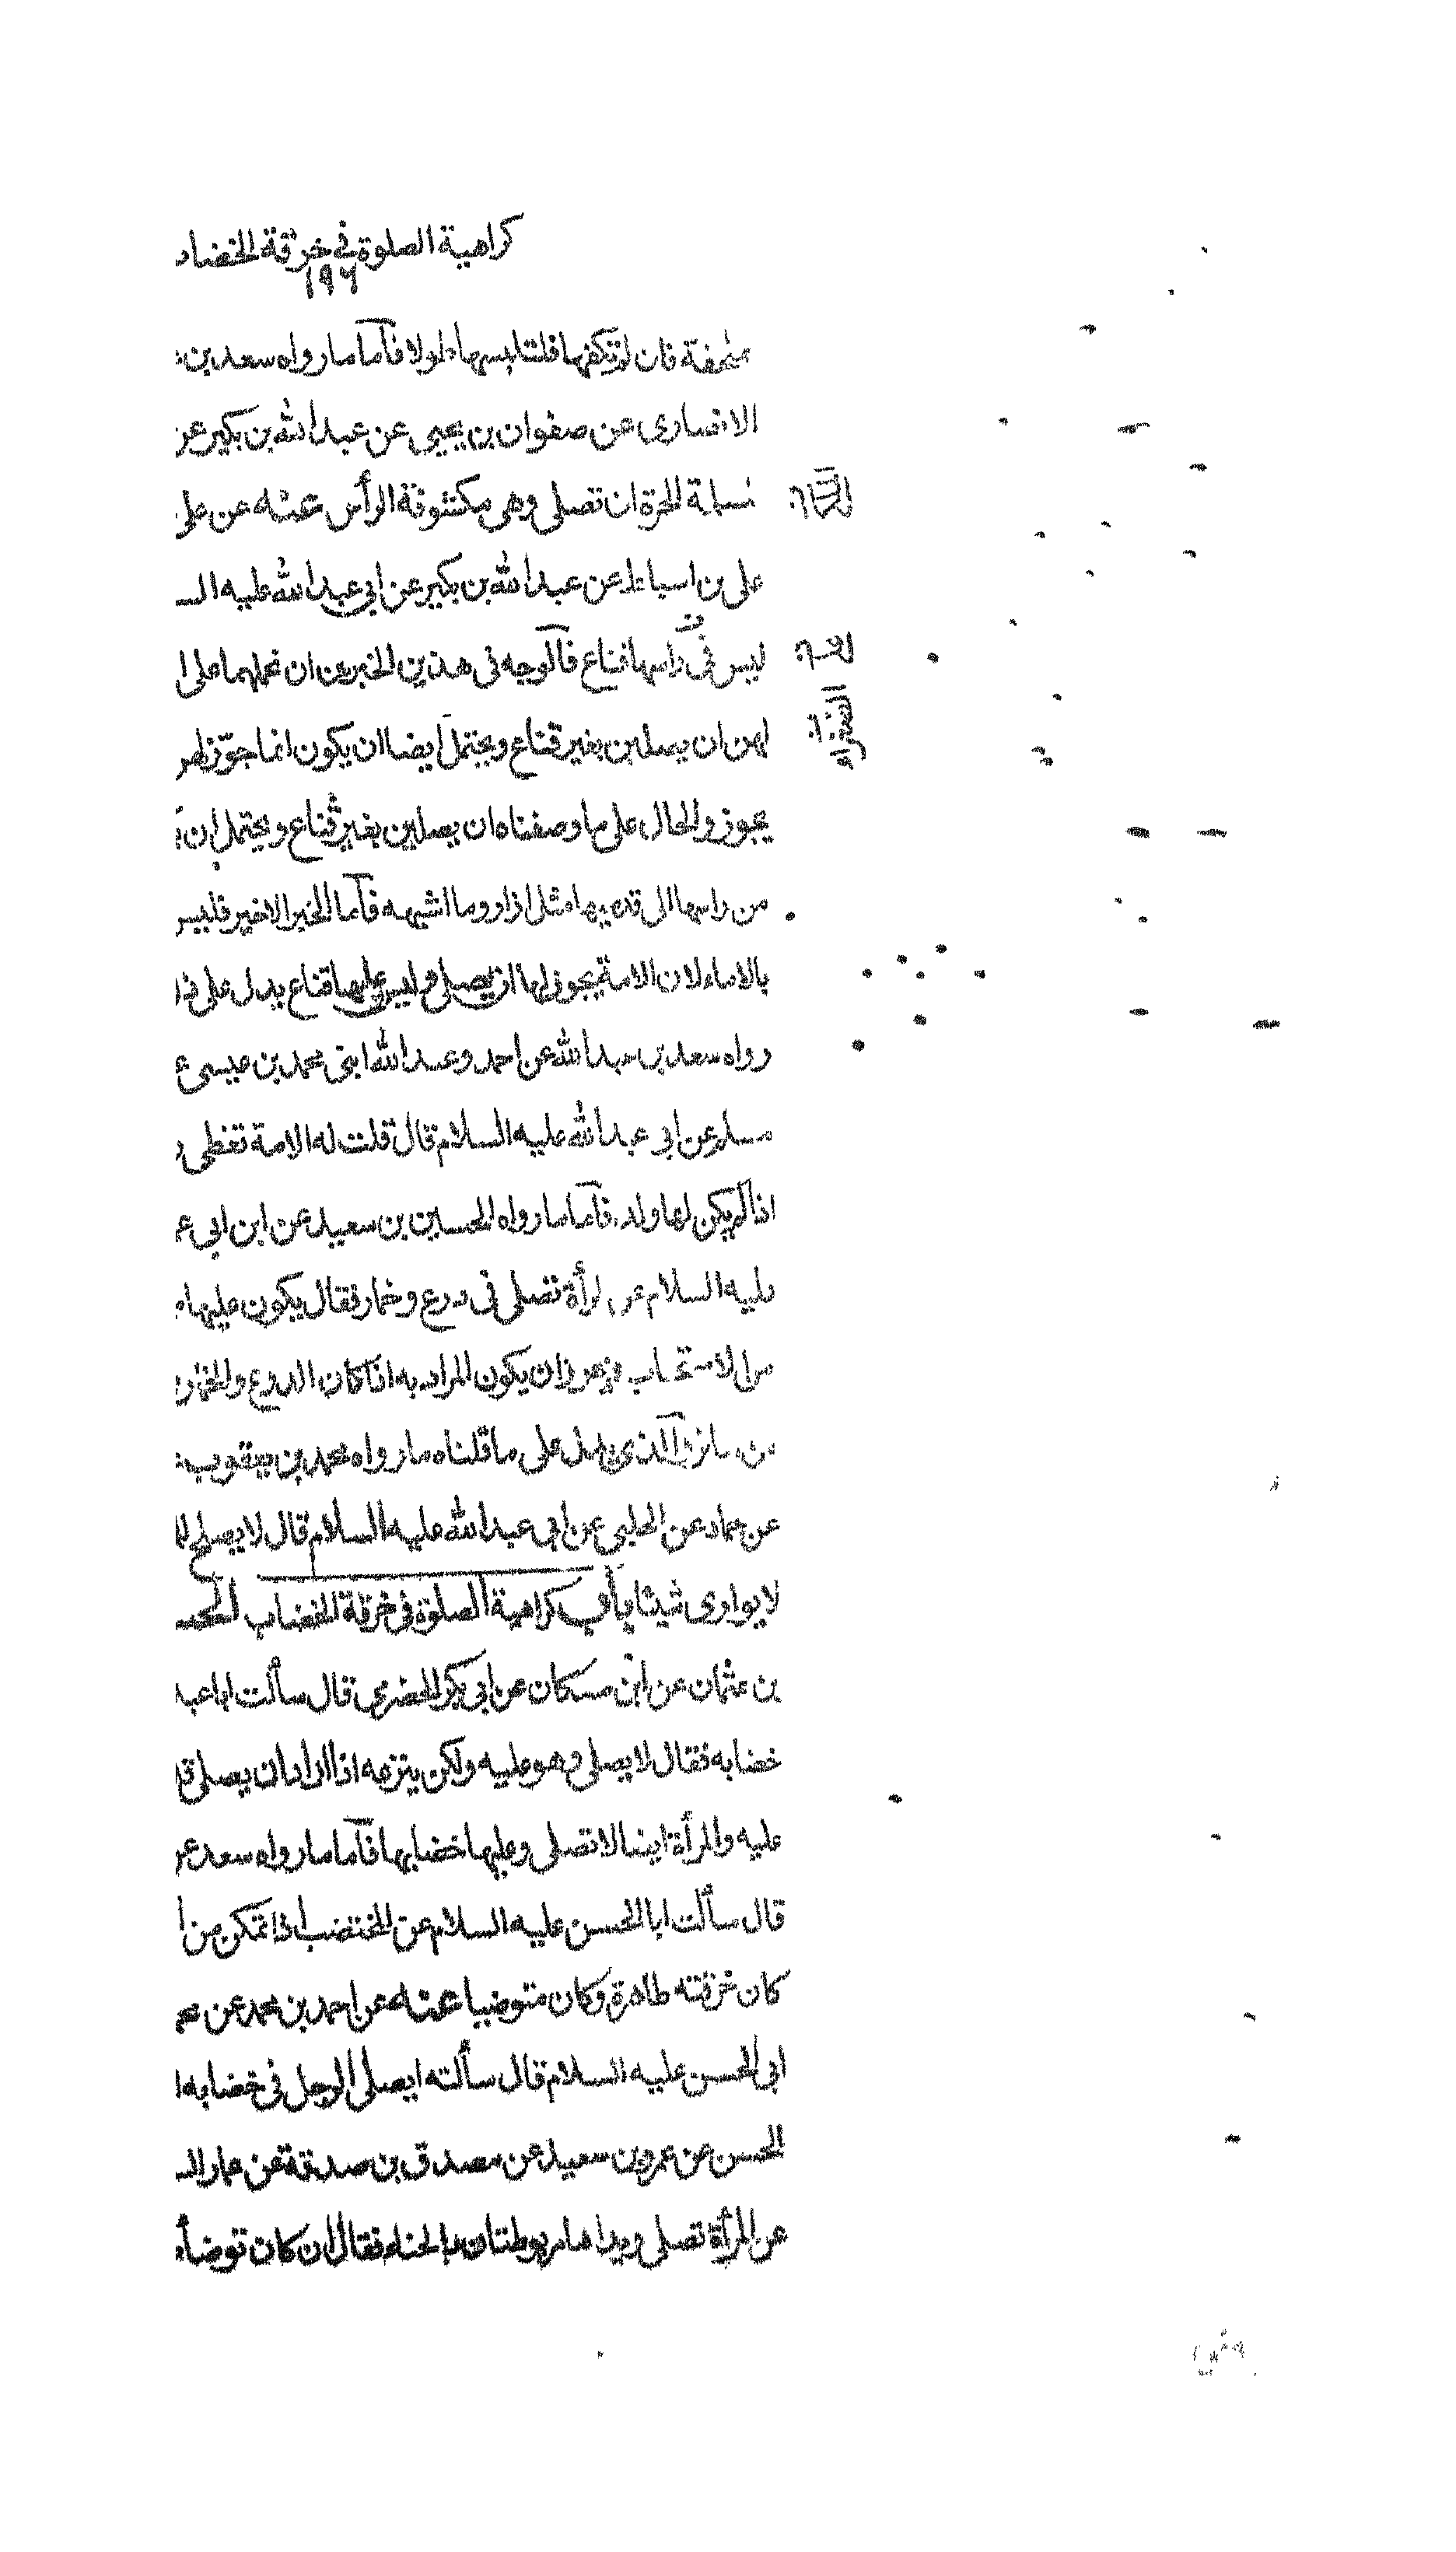 كراهية الصلوة في خرقة الخضا
١٩٦
بملحفة فان لم تكفها فلتلبسها طولا فأما ما رواه سعد بن
الانصاري عن صفوان بن يحيى عن عبد الله بن بكير عن
المسلمة الحرة ان تصلي وهي مكشوفة الرأس عنه عن علي
علي بن اسباط عن عبد الله بن بكير عن ابي عبد الله عليه الـ
ليس على راسها قناع فالوجه في هذين الخبرين ان نحملهما على ا
لهن ان يصلين بغير قناع ويحتمل ايضا ان يكون انما جوّز لهن
يجوز والحال على ما وصفناه ان يصلين بغير قناع ويحتمل ان
من راسها الى قدميها مثل ازار وما اشبهه فأما الخبر الاخير فليس
بالاماء لان الامة يجوز لها ان تصلي وليس عليها قناع يدل على ذ
رواه سعد بن عبد الله عن احمد وعبد الله ابنى محمد بن عيسى ع
مسلم عن ابي عبد الله عليه السلام قال قلت له الامة تغطي
اذا لم يكن لها ولد فأما ما رواه الحسين بن سعيد عن ابن ابي عم
عليه السلام عن المرأة تصلي في درع وخمار فقال يكون عليها
من الاستحباب ويجوز ان يكون المراد به اذا كان الدرع والخمار
عن حماد عن الحلبي عن ابي عبد الله عليه السلام قال لا يصلح لل
لا يوارى شيئا باب كراهية الصلوة في خرقة الخضاب الحسـ
بن عثمان عن ابن مسكان عن ابي بكر الحضرمي قال سألت ابا عبد
خضابه فقال لا يصلي وهو عليه ولكن ينزعه اذا اراد ان يصلي
عليه والمرأة ايضا لا تصلي وعليها خضابها فأما ما رواه سعد عن
قال سألت ابا الحسن عليه السلام عن المختضب اذا تمكن من ا
كان خرقته طاهرة وكان متوضيا عنه عن احمد بن محمد عن مح
ابي الحسن عليه السلام قال سألته ايصلي الرجل في خضابه ا
الحسن عن عمرو بن سعيد عن مصدق بن صدقة عن عمار الـ
عن المرأة تصلي ويداها مربوطتان بالحناء فقال ان كان توضأ